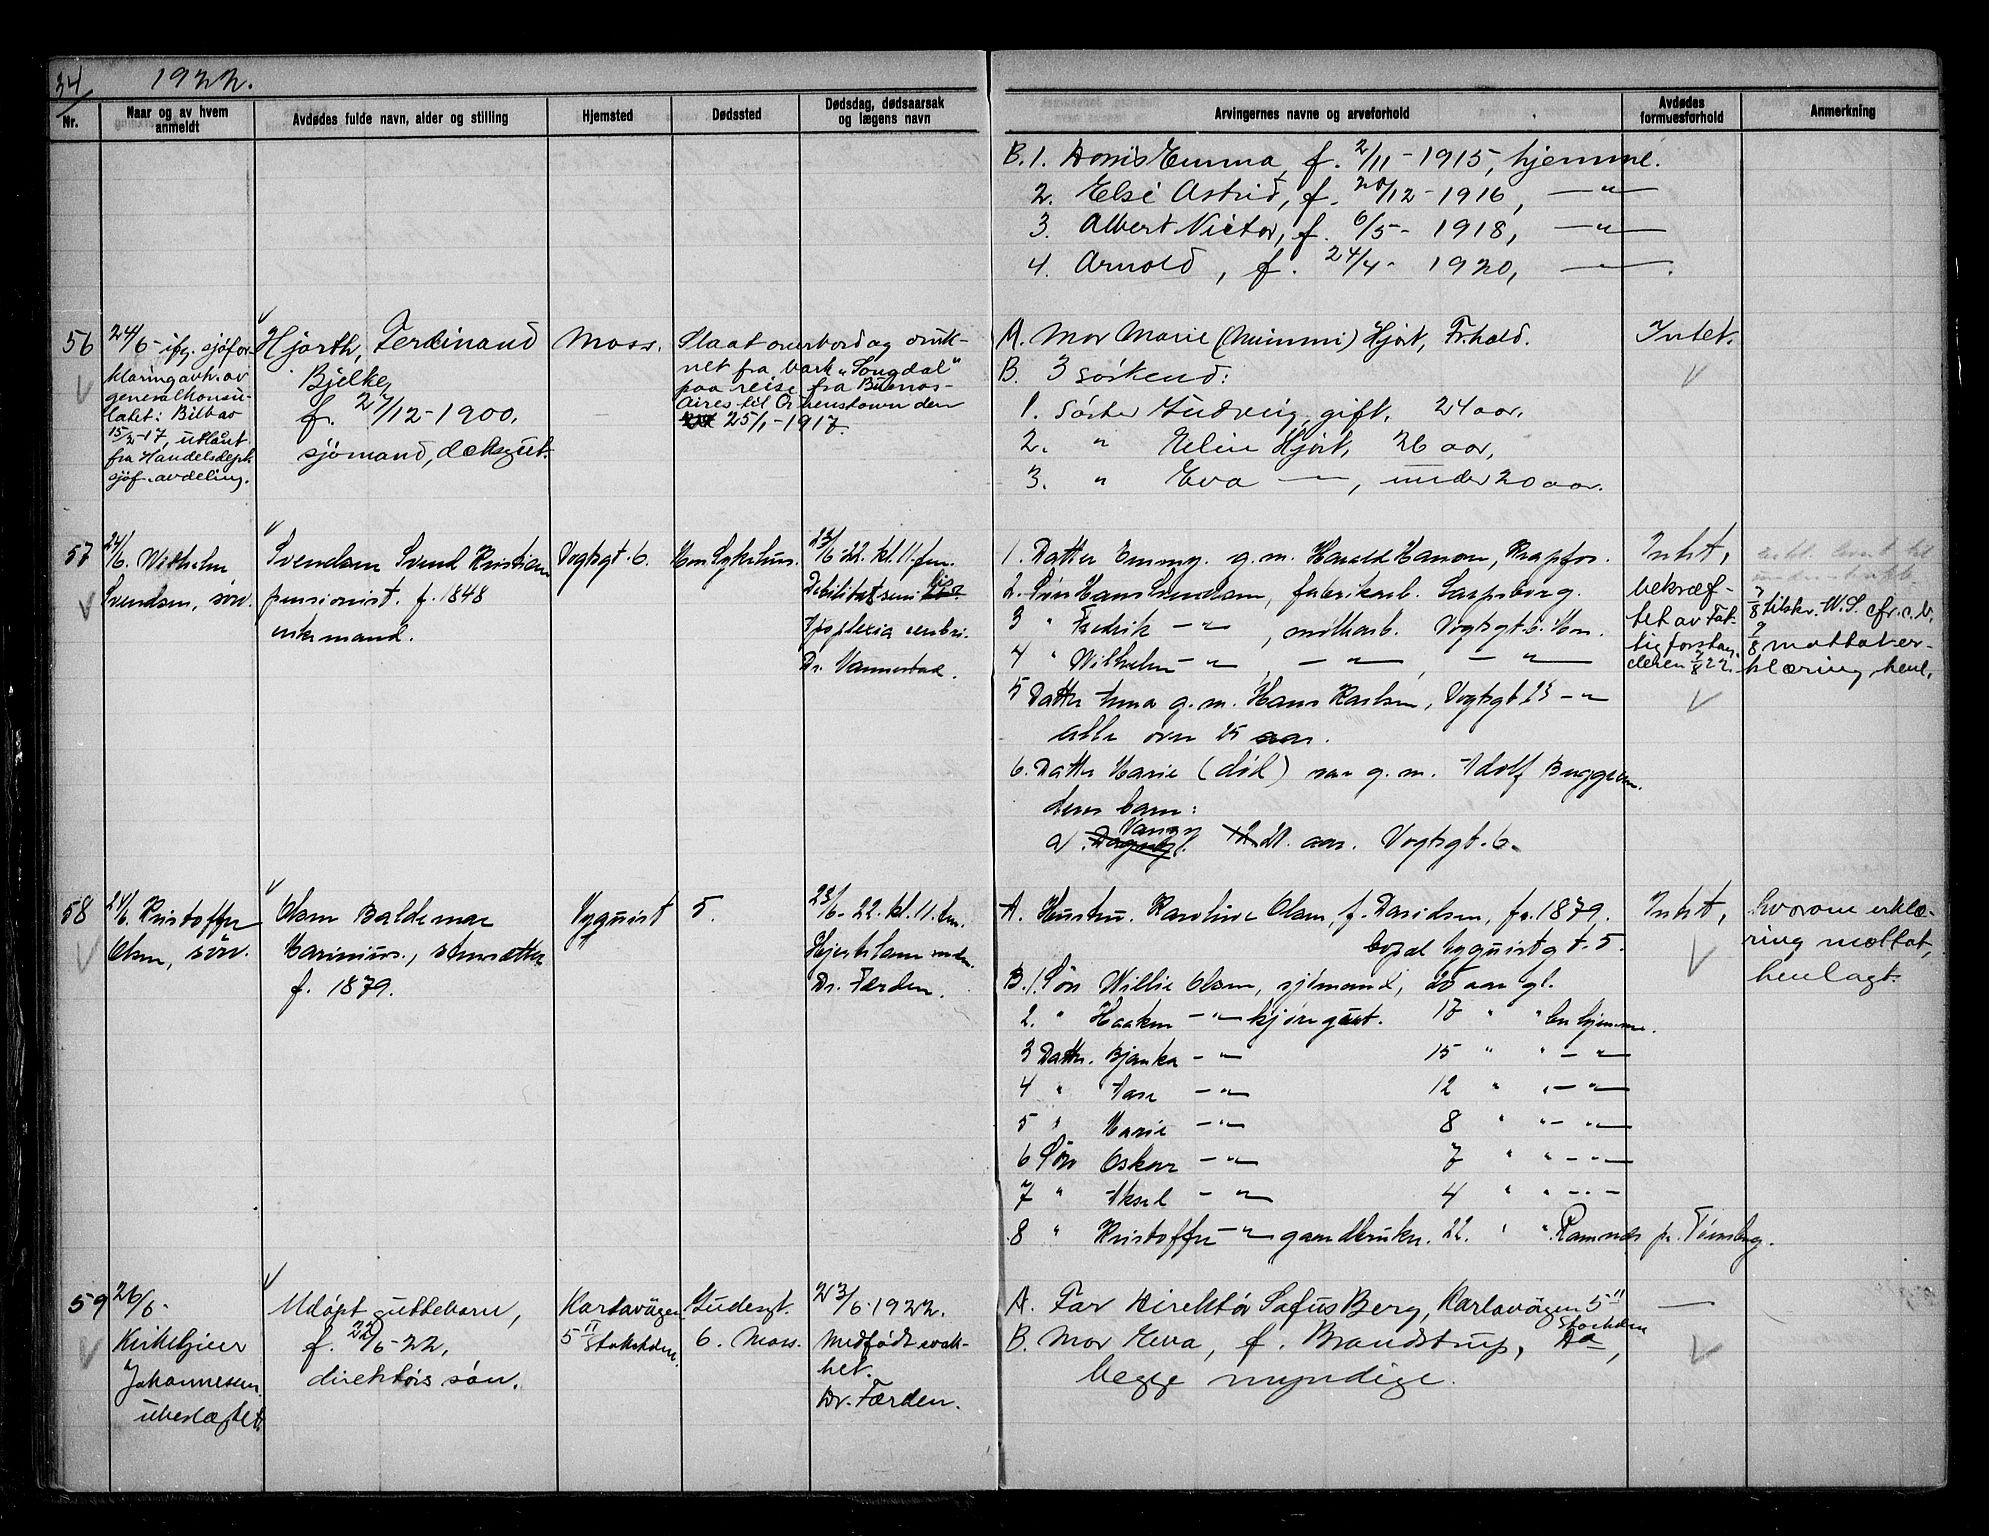 34 1922.
Nr.
Naar og av hvem anmeldt
Avdødes fulde navn, alder og stilling
Hjemsted
Dødssted
Dødsdag, dødsaarsak og lægens navn
Arvingernes navne og arveforhold
Avdødes formuesforhold
Anmerkning
B. 1. Doris Emma, f. 2/11 - 1915, hjemme.
2. Else Astrid, f. 20/12 - 1916, —"—
3. Albert Victor, f. 6/5 - 1918, —"—
4. Arnold, f. 24/4 - 1920, ———.
56
24/6 - ifg. sjøfor
klaring avh. av
generalkonsu-
latet i Bilbao
15/2-17, utlaant
fra Handelsdept.
sjøf. avdeling.
Hjorth, Ferdinand
Bjelke,
f. 27/12 - 1900,
sjømand, dæksgut.
Moss.
Slaat overbord og druk-
net fra bark "Songdal"
paa reise fra Buenos-
Aires til Queenstown den
25/1 - 1917.
A. Mor Marie (Mimmi) Hjort, Fr.hald.
B. 3 søskend:
1. Søster Ludvig, gift, 24 aar.
2. " Elin Hjort, 26 aar,
3. " Eva —"—, under 20 aar.
Intet.
57
24/6. Wilhelm
Svendsen, søn.
Svendsen Svend Kristian
pensionist. f. 1848
enkemand.
Vogtsgt. 6.
Mos Sykehus.
23/6-22. kl. 11. fm.
Debilitas senilis
Apoplexia cerebri.
Dr. Vannestad.
1. Datter Emmy. g.m. Harald Hanson, Krapfos.
2. Søn Hans Svendsen, fabrikarb. Sarpsborg.
3 " Fredrik —"—, møllearb. Vogtsgt. 6. Mos.
4 " Wilhelm —"—, —"—, —"—
5 Datter Anna g.m. Hans Karlsen, Vogtsgt. 23 —"—
alle over 25 aar.
6. Datter Marie (død) var g.m. Adolf Buggeson.
deres barn:
a. Vanny 21. aar. Vogtsgt. 6.
Intet,
bekræf-
tet av Fat-
tigforstan-
deren 7/8 22.
7/8 tilskr. W.S. cfr. c.b.
7/8 mottat er-
klæring, henl.
58
24/6. Kristoffer
Olsen, søn.
Olsen Baldemar
Marinius., stensætter
f. 1879.
Nyquist 5.
23/6-22. kl. 11. fm.
Hjertelammelse.
Dr. Færden.
A. Hustru. Karoline Olsen, f. Davidsen, fr. 1879.
bopæl Nyquistgt. 5.
B. 1. Søn Willie Olsen, sjømand, 20 aar gl.
2. " Haakon —"— kjøregut. 17 " " bor hjemme.
3 Datter. Bjanka —"— 15 " " —"—
4 " Aase —"— 12 " " —"—
5 " Marie —"— 8 " " —"—
6 Søn Oskar —"— 7 " " —"—
7 " Aksel —"— 4 " " —"—
8 " Kristoffer —"— gaardbruker. 22. " " Ramnes pr. Tønsberg.
Intet,
hvorom erklæ-
ring mottat,
henlagt.
59
26/6 -
Kirketjener
Johannesen.
ubeslægtet.
Udøpt guttebarn,
f. 22/6 - 22,
direktørs søn.
Karlavägen
5 II
Stokholm.
Gudesgt.
6. Moss.
23/6 - 1922.
Medfødt svak-
het.
Dr. Færden.
A. Far direktør Sofus Berg, Karlavägen 5 II
Stockholm
B. Mor Ewa, f. Brandstrup, Do,
begge myndige.
—